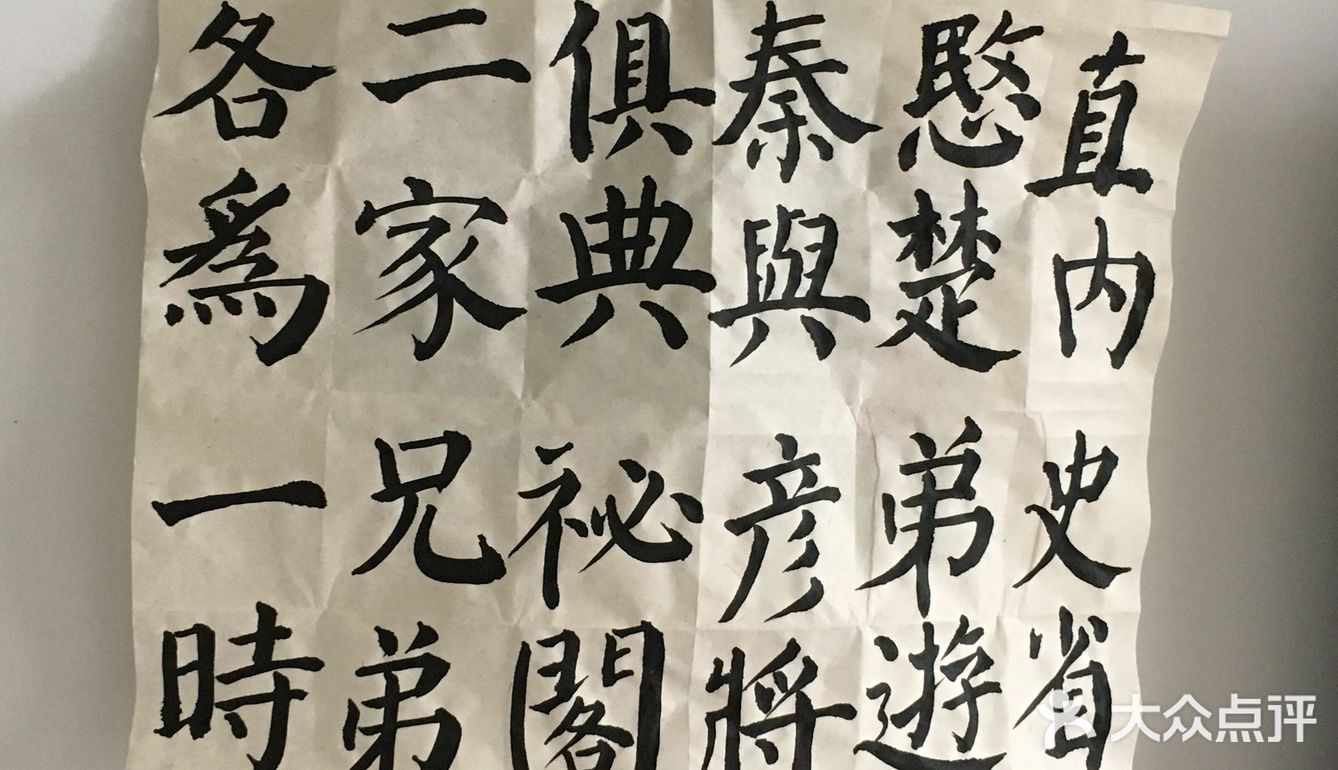 直内史省
愍楚弟遊
秦與彦將
俱典祕閣
二家兄弟
各為一時
大众点评